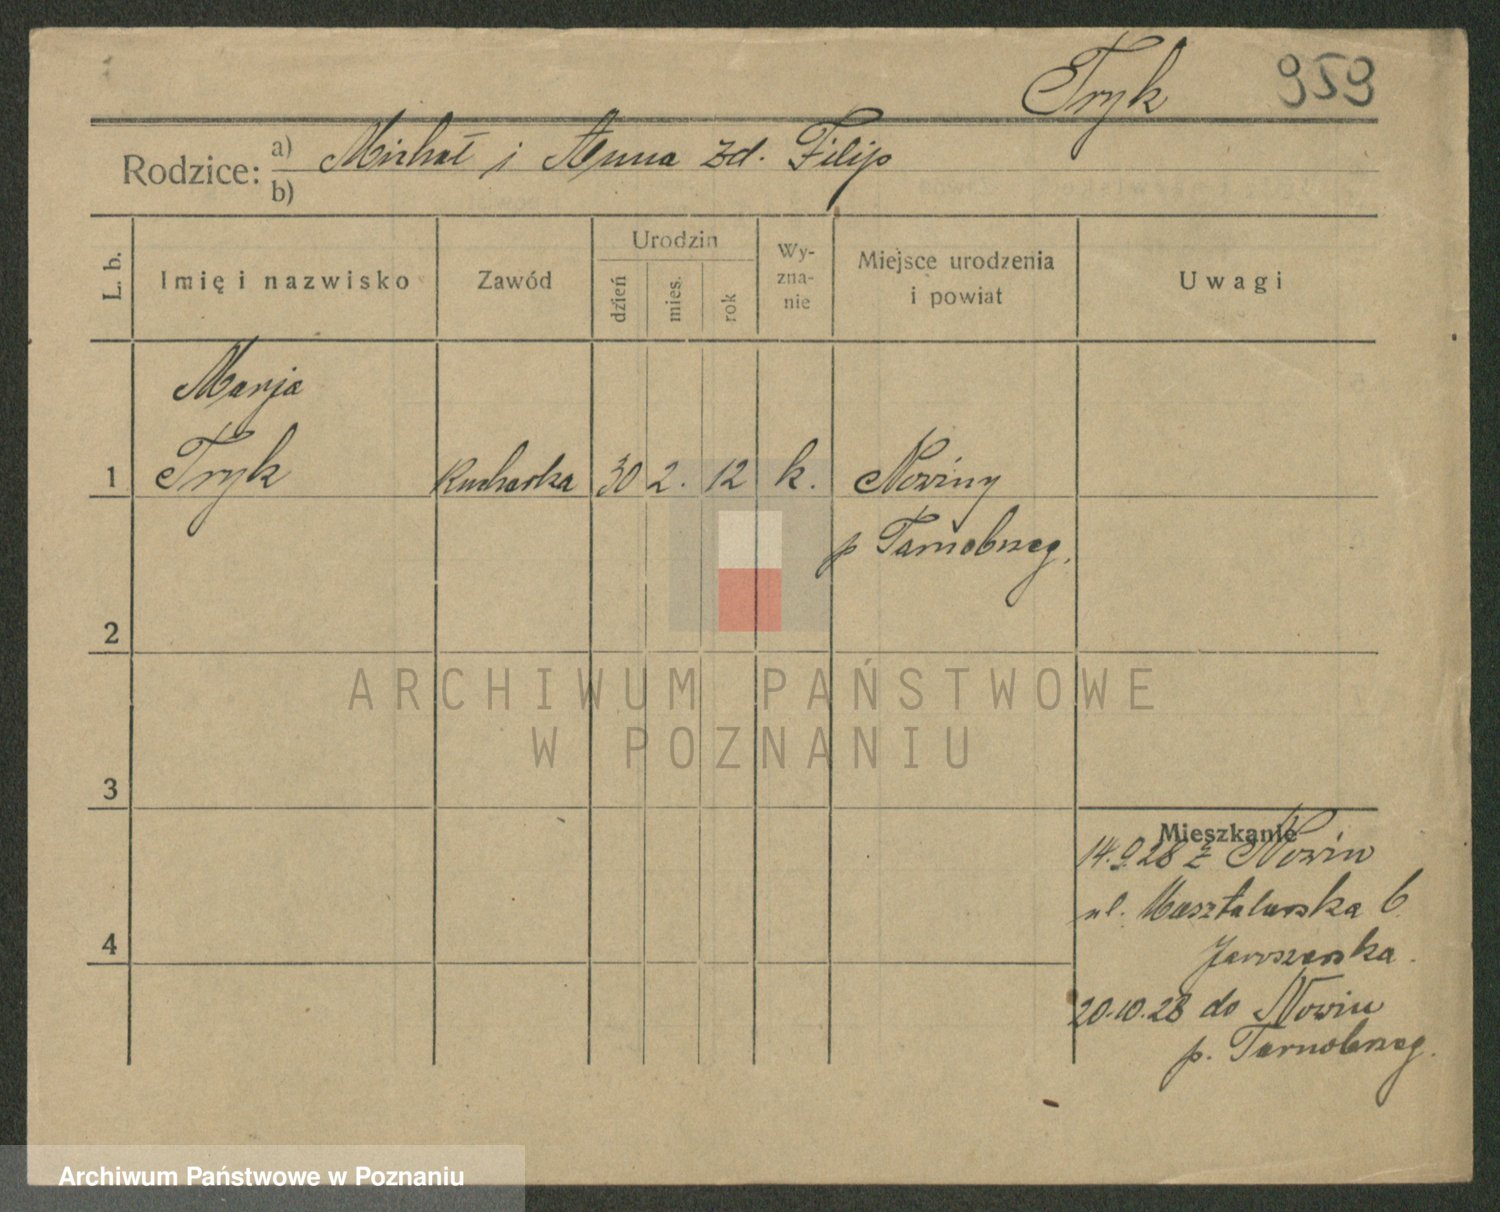 Tryk 959
Rodzice: a) Michał i Anna zd. Filip
b)
L. b. Imię i nazwisko Zawód Urodzin dzień mies. rok Wy-zna-nie Miejsce urodzenia i powiat Uwagi
Marja
1 Tryk Kucharka 30 2. 12 k. Nowiny
p Tarnobrzeg.
2
ARCHIWUM PAŃSTWOWE
W POZNANIU
3
Mieszkanie
14.9.28 z Nowin
ul. Masztalarska 6
4
20.10.28 do Nowin
p. Tarnobrzeg.
Archiwum Państwowe w Poznaniu